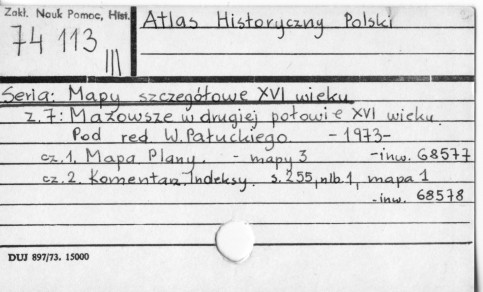 Zakł. Nauk Pomoc, Hist.
74 113
Atlas Historyczny Polski
Seria: Mapy szczegółowe XVI wieku
z.7: Mazowsze w drugiej połowie XVI wieku.
Pod red. W. Pałuckiego. -1973-
cz.1. Mapa Plany. - mapy 3 -inw. 68577
cz.2. Komentarz, Indeksy. s.255, nlb.1, mapa 1
-inw. 68578
DUJ 897/73. 15000